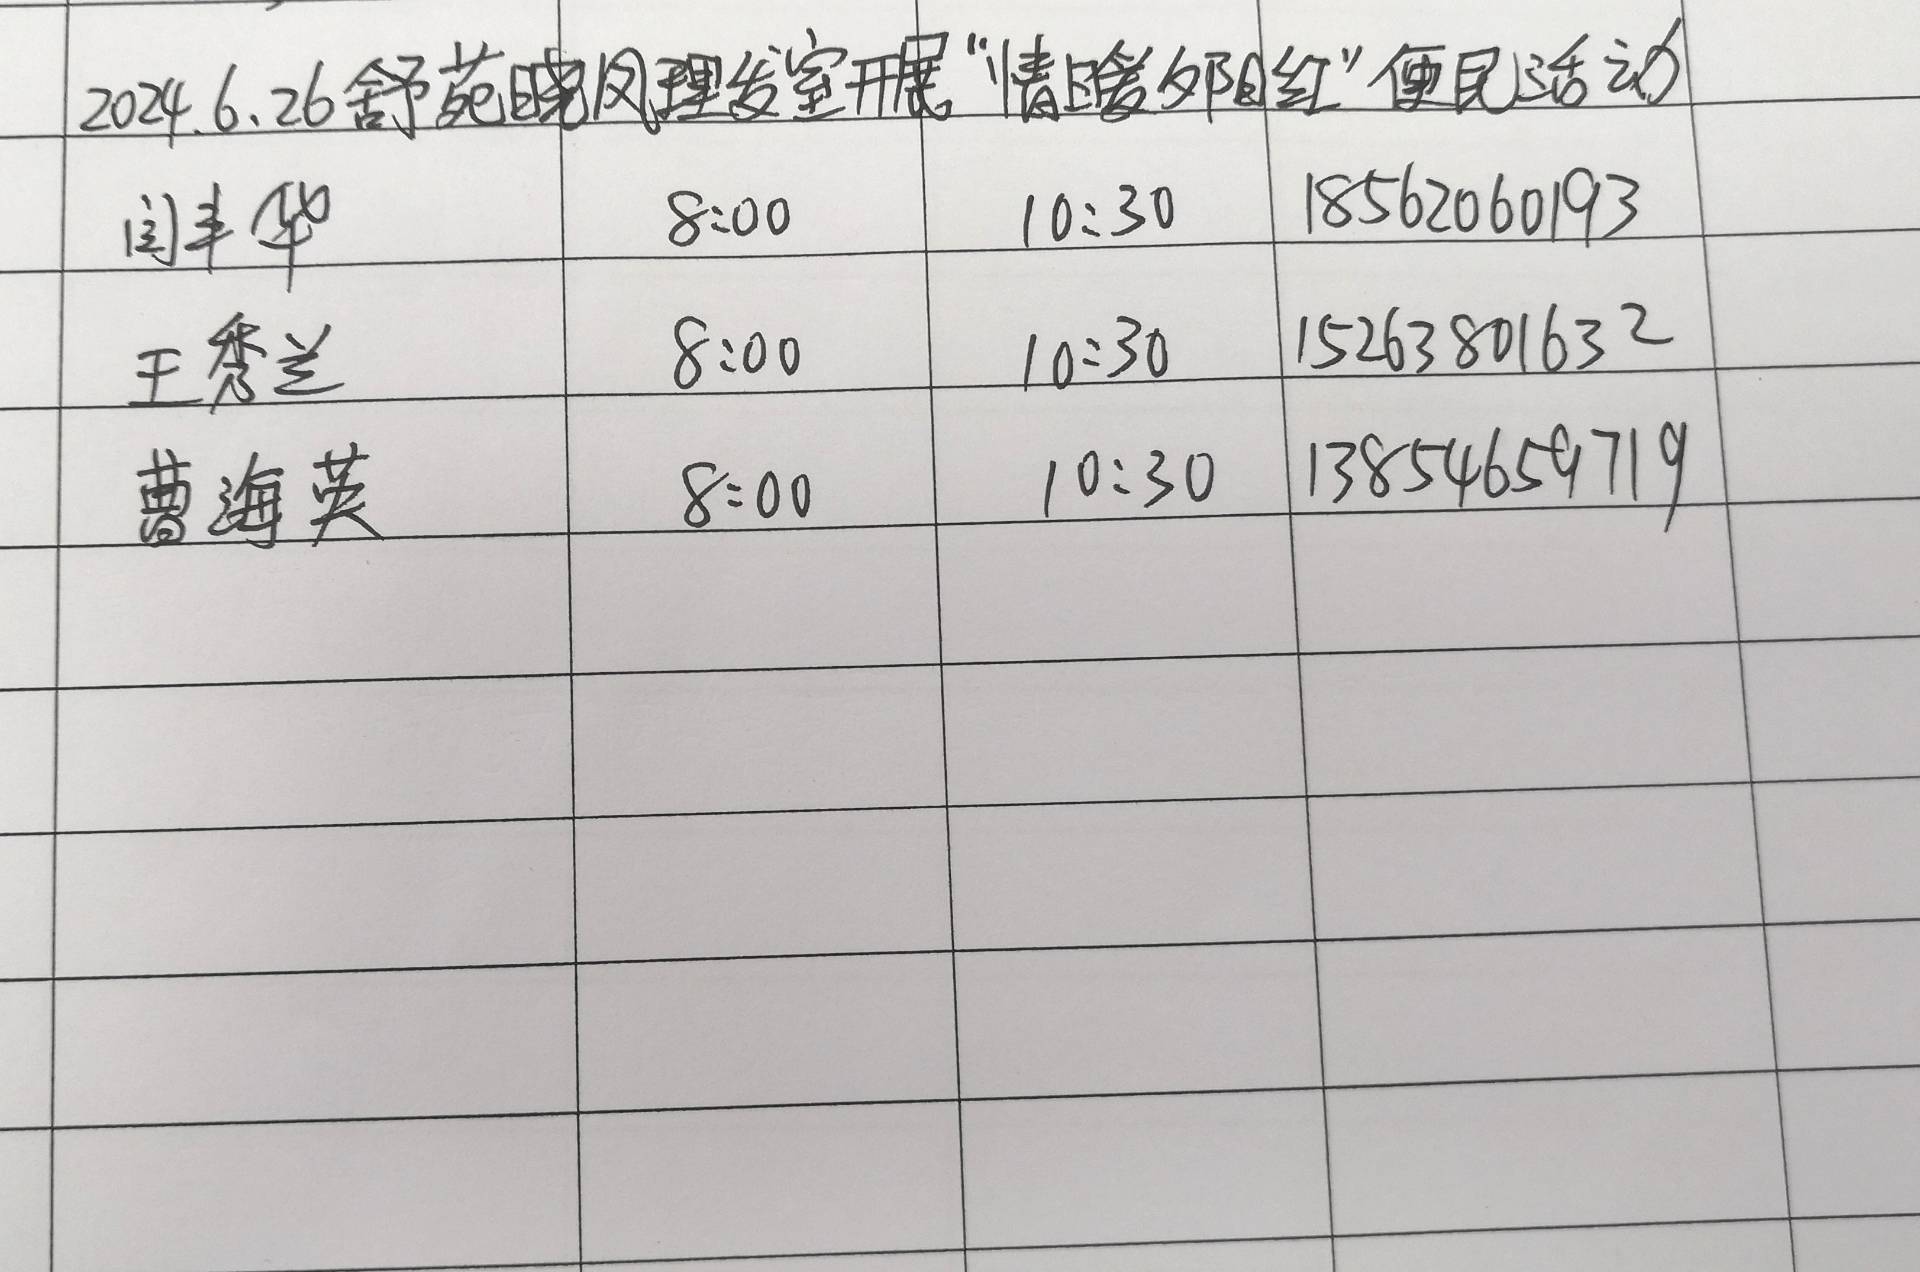 2024.6.26舒苑晓风理发室开展“情暖夕阳红”便民活动
闫丰华 8:00 10:30 18562060193
王秀兰 8:00 10:30 15263801632
曹海英 8:00 10:30 13854659719